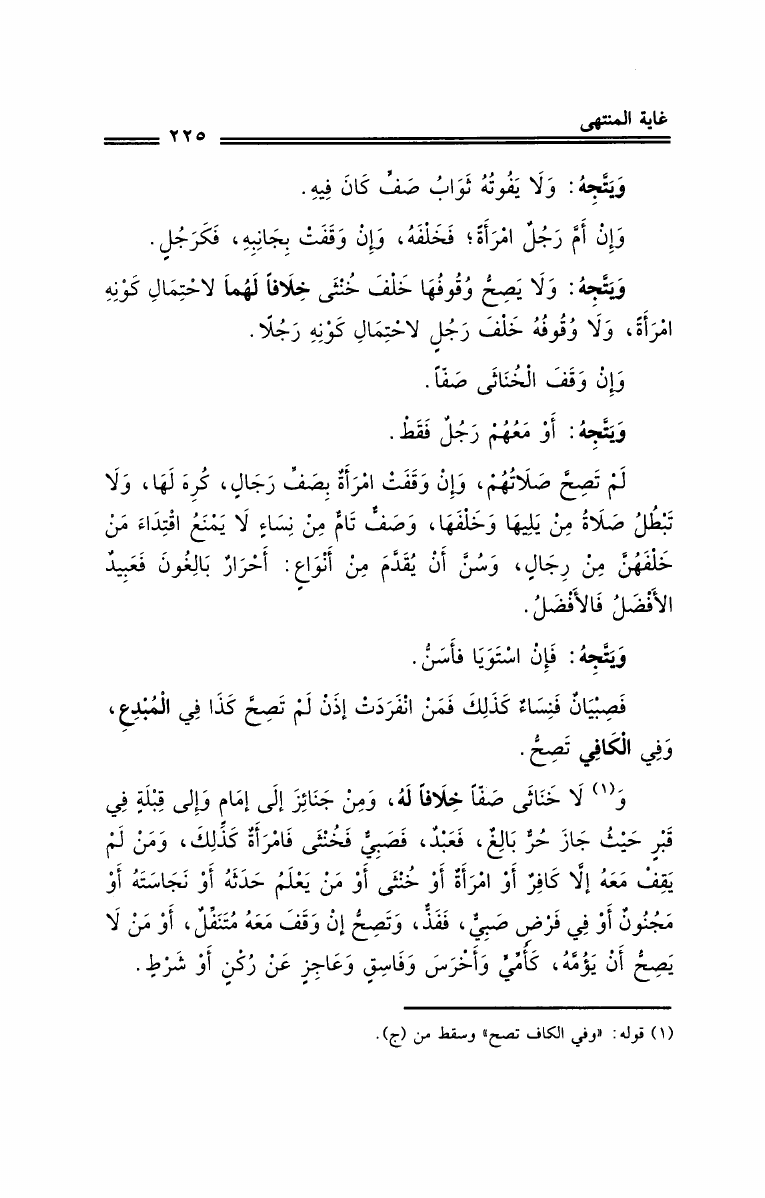 غاية المنتهى
٢٢٥
وَيَتَّجِهُ: وَلَا يَفُوتُهُ ثَوَابُ صَفٍّ كَانَ فِيهِ.
وَإِنْ أَمَّ رَجُلٌ امْرَأَةً؛ فَخَلْفَهُ، وَإِنْ وَقَفَتْ بِجَانِبِهِ، فَكَرَجُلٍ.
وَيَتَّجِهُ: وَلَا يَصِحُّ وُقُوفُهَا خَلْفَ خُنْثَى خِلَافاً لَهُماَ لاحْتِمَالِ كَوْنِهِ
امْرَأَةً، وَلَا وُقُوفُهُ خَلْفَ رَجُلٍ لاحْتِمَالِ كَوْنِهِ رَجُلًا.
وَإِنْ وَقَفَ الْخُنَاثَى صَفّاً.
وَيَتَّجِهُ: أَوْ مَعَهُمْ رَجُلٌ فَقَطْ.
لَمْ تَصِحَّ صَلَاتُهُمْ، وَإِنْ وَقَفَتْ امْرَأَةٌ بِصَفِّ رَجَالٍ، كُرِهَ لَهَا، وَلَا
تَبْطُلُ صَلَاةُ مِنْ يَلِيهَا وَخَلْفَهَا، وَصَفٌّ تَامٌّ مِنْ نِسَاءٍ لَا يَمْنَعُ اقْتِدَاءَ مَنْ
خَلْفَهُنَّ مِنْ رِجَالٍ، وَسُنَّ أَنْ يُقَدَّمَ مِنْ أَنْوَاعٍ: أَحْرَارٌ بَالِغُونَ فَعَبِيدٌ
الأَفْضَلُ فَالأَفْضَلُ.
وَيَتَّجِهُ: فَإِنْ اسْتَوَيَا فأَسَنُّ.
فَصِبْيَانٌ فَنِسَاءٌ كَذَلِكَ فَمَنْ انْفَرَدَتْ إذَنْ لَمْ تَصِحَّ كَذَا فِي الْمُبْدِعِ،
وَفِي الْكَافِي تَصِحُّ.
وَ(١) لَا خَنَاثَى صَفّاً خِلَافاً لَهُ، وَمِنْ جَنَائِزَ إلَى إمَامٍ وَإِلى قِبْلَةٍ فِي
قَبْرٍ حَيْثُ جَازَ حُرٌّ بَالِغٌ، فَعَبْدٌ، فَصَبِيٌّ فَخُنْثَى فَامْرَأَةٌ كَذَلِكَ، وَمَنْ لَمْ
يَقِفْ مَعَهُ إلَّا كَافِرٌ أَوْ امْرَأَةٌ أَوْ خُنْثَى أَوْ مَنْ يَعْلَمُ حَدَثَهُ أَوْ نَجَاسَتَهُ أَوْ
مَجْنُونٌ أَوْ فِي فَرْضٍ صَبِيٌّ، فَفَذٌّ، وَتَصِحُّ إنْ وَقَفَ مَعَهُ مُتَنَفِّلٌ، أَوْ مَنْ لَا
يَصِحُّ أَنْ يَؤُمَّهُ، كَأُمِّيٍّ وَأَخْرَسَ وَفَاسِقٍ وَعَاجِزٍ عَنْ رُكْنٍ أَوْ شَرْطٍ.
(١) قوله: «وفي الكاف تصح» وسقط من (ج).